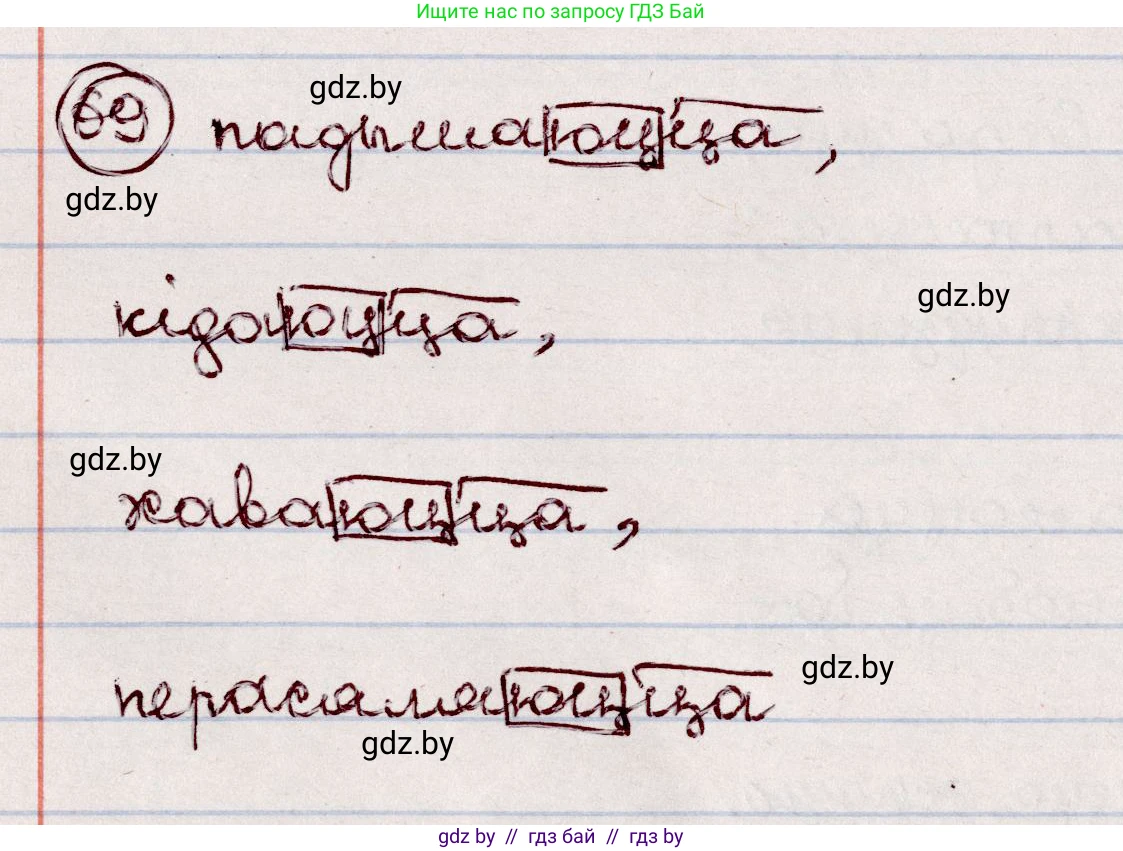 Ищите нас по запросу ГДЗ Бай
gdz.by
69 падымаюцца,
gdz.by
gdz.by
кідаюцца,
gdz.by
хаваюцца,
gdz.by
перасаляюцца
gdz.by
gdz by // гдз бай // гдз by